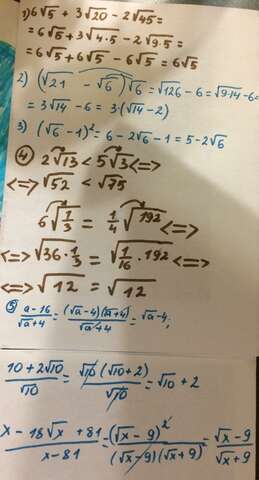 1) 6√5 + 3√20 - 2√45 =
= 6√5 + 3√4·5 - 2√9·5 =
= 6√5 + 6√5 - 6√5 = 6√5
2) (√21 - √6)√6 = √126 - 6 = √9·14 - 6 =
= 3√14 - 6 = 3·(√14 - 2)
3) (√6 - 1)² = 6 - 2√6 - 1 = 5 - 2√6
4 2√13 < 5√3 <=>
<=> √52 < √75
6√1/3 = 1/4 √192 <=>
<=> √36·1/3 = √1/16·192 <=>
<=> √12 = √12
5 a-16/√a+4 = (√a-4)(√a+4)/√a+4 = √a-4;
10+2√10/√10 = √10(√10+2)/√10 = √10 + 2
x - 18√x + 81/x-81 = (√x-9)²/(√x-9)(√x+9) = √x-9/√x+9